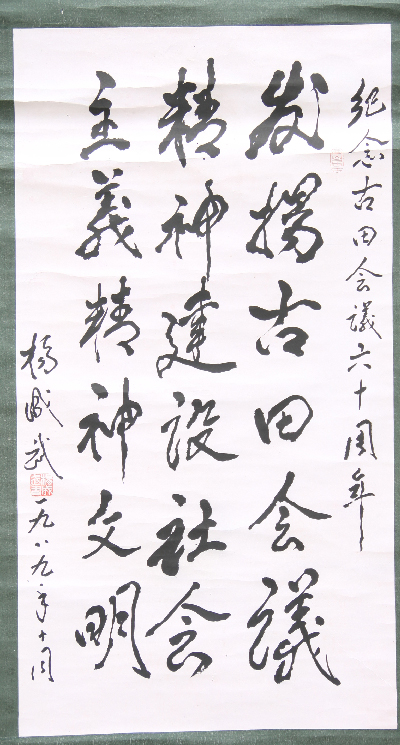 纪念古田会議六十周年
发揚古田会議
精神建设社会
主義精神文明
楊成武
一九八九年十月